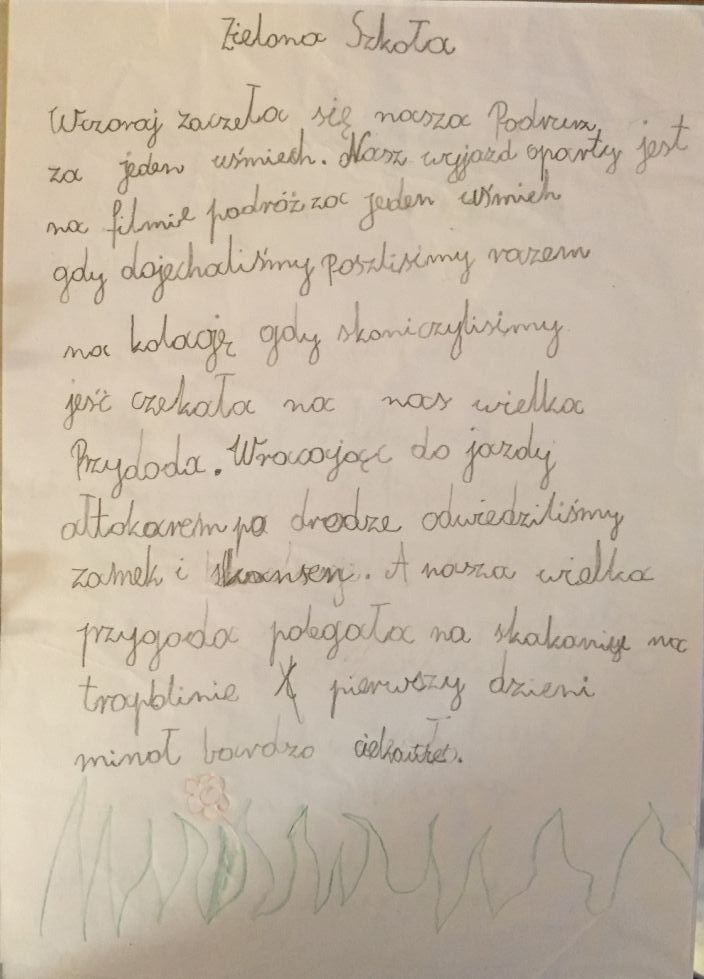 Zielona Szkoła
Wczoraj zaczeła się nasza Podrurz,
za jeden uśmiech. Nasz wyjazd oparty jest
na filmie podróż za jeden uśmieh
gdy dojechaliśmy poszlisimy razem
na kolację gdy skoniczylisimy
jeść czekała na nas wielka
Przydoda. Wracając do jazdy
ałtokarem po drodze odwiedziliśmy
zamek i skansen. A nasza wielka
przygoda polegała na skakaniu na
tranplinie pierwszy dzieni
minoł bardzo